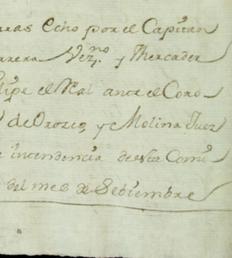 ras Echo por el Capitan
rrera Vezno y Mercader
lipe el Real ante el Coro
de Orozco, y Molina Juez
e intendencia de esta Comi
del mes de Septiembre